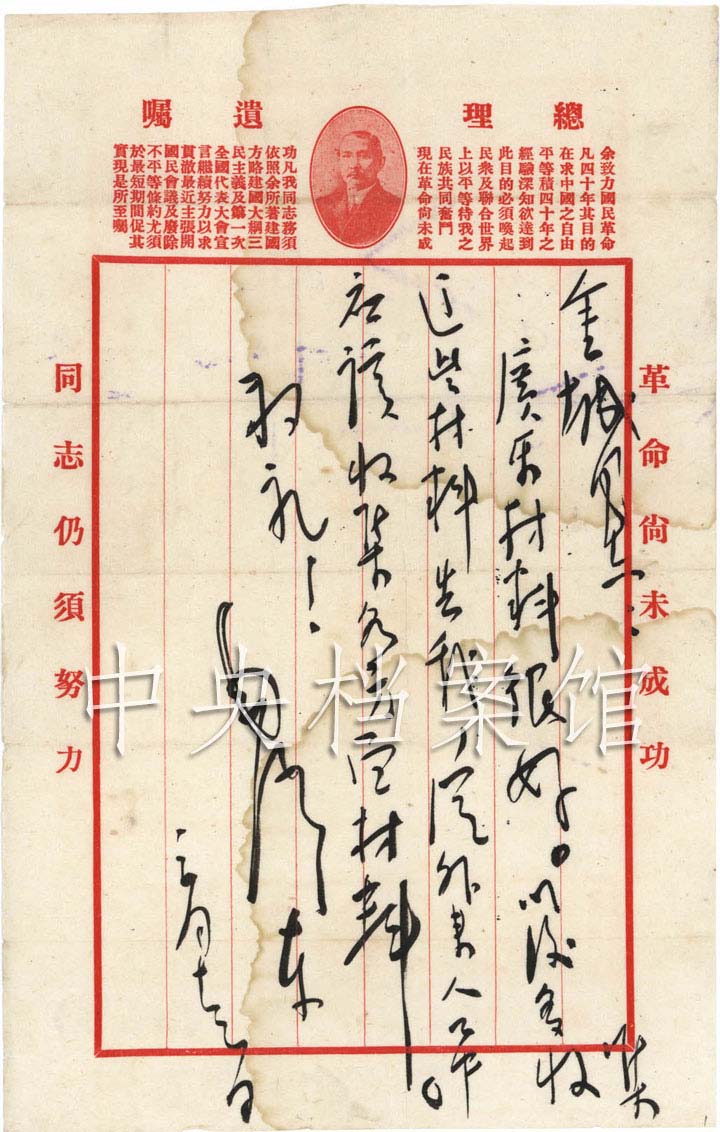 總理遺囑
余致力國民革命
凡四十年其目的
在求中國之自由
平等積四十年之
經驗深知欲達到
此目的必須喚起
民眾及聯合世界
上以平等待我之
民族共同奮鬥
現在革命尚未成
功凡我同志務須
依照余所著建國
方略建國大綱三
民主義及第一次
全國代表大會宣
言繼續努力以求
貫澈最近主張開
國民會議及廢除
不平等條約尤須
於最短期間促其
實現是所至囑
革命尚未成功
金城同志：
材料很好。以後多收集
这些材料告我，
应該收集各方面材料。
敬礼！
毛泽东
同志仍須努力
中央档案馆